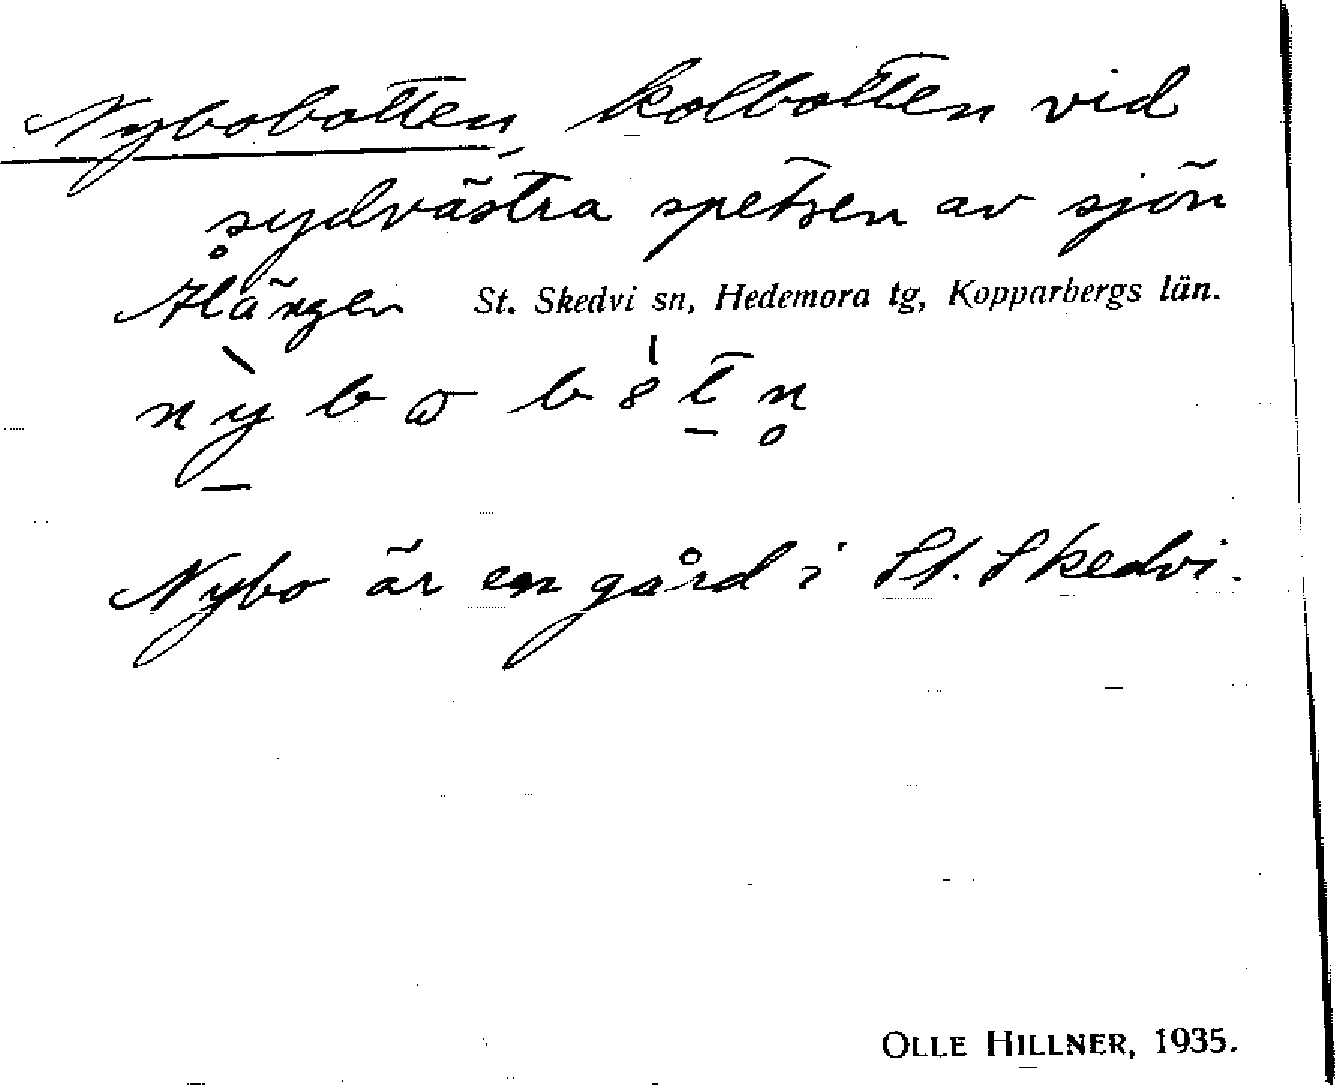 Nybobotten, kolbotten vid
sydvästra spetsen av sjön
St. Skedvi sn, Hedemora tg, Kopparbergs län.
Nybo är en gård i St. Skedvi.
OLLE HILLNER, 1935.